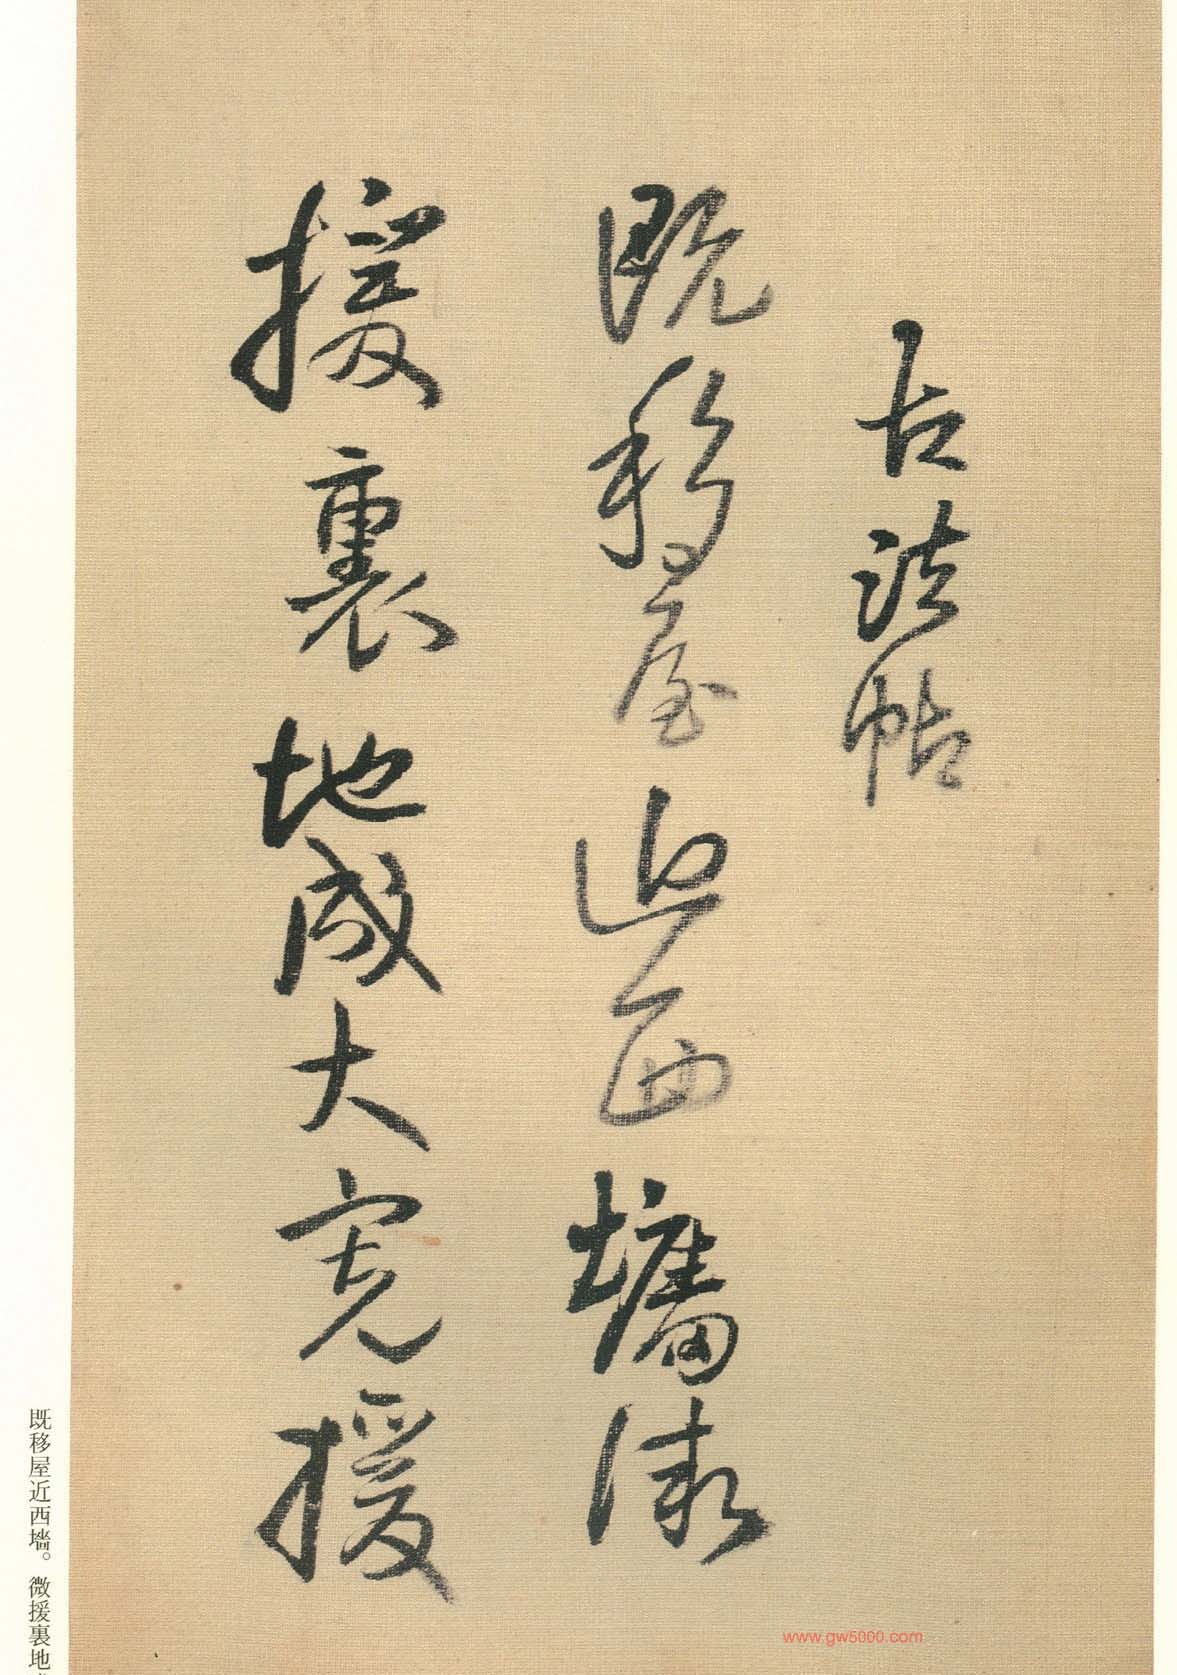 古法帖
既移屋近西墻微
援裏地成大寛援
既移屋近西墙。微援裏地
www.gw5000.com